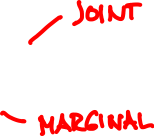 JOINT
MARGINAL